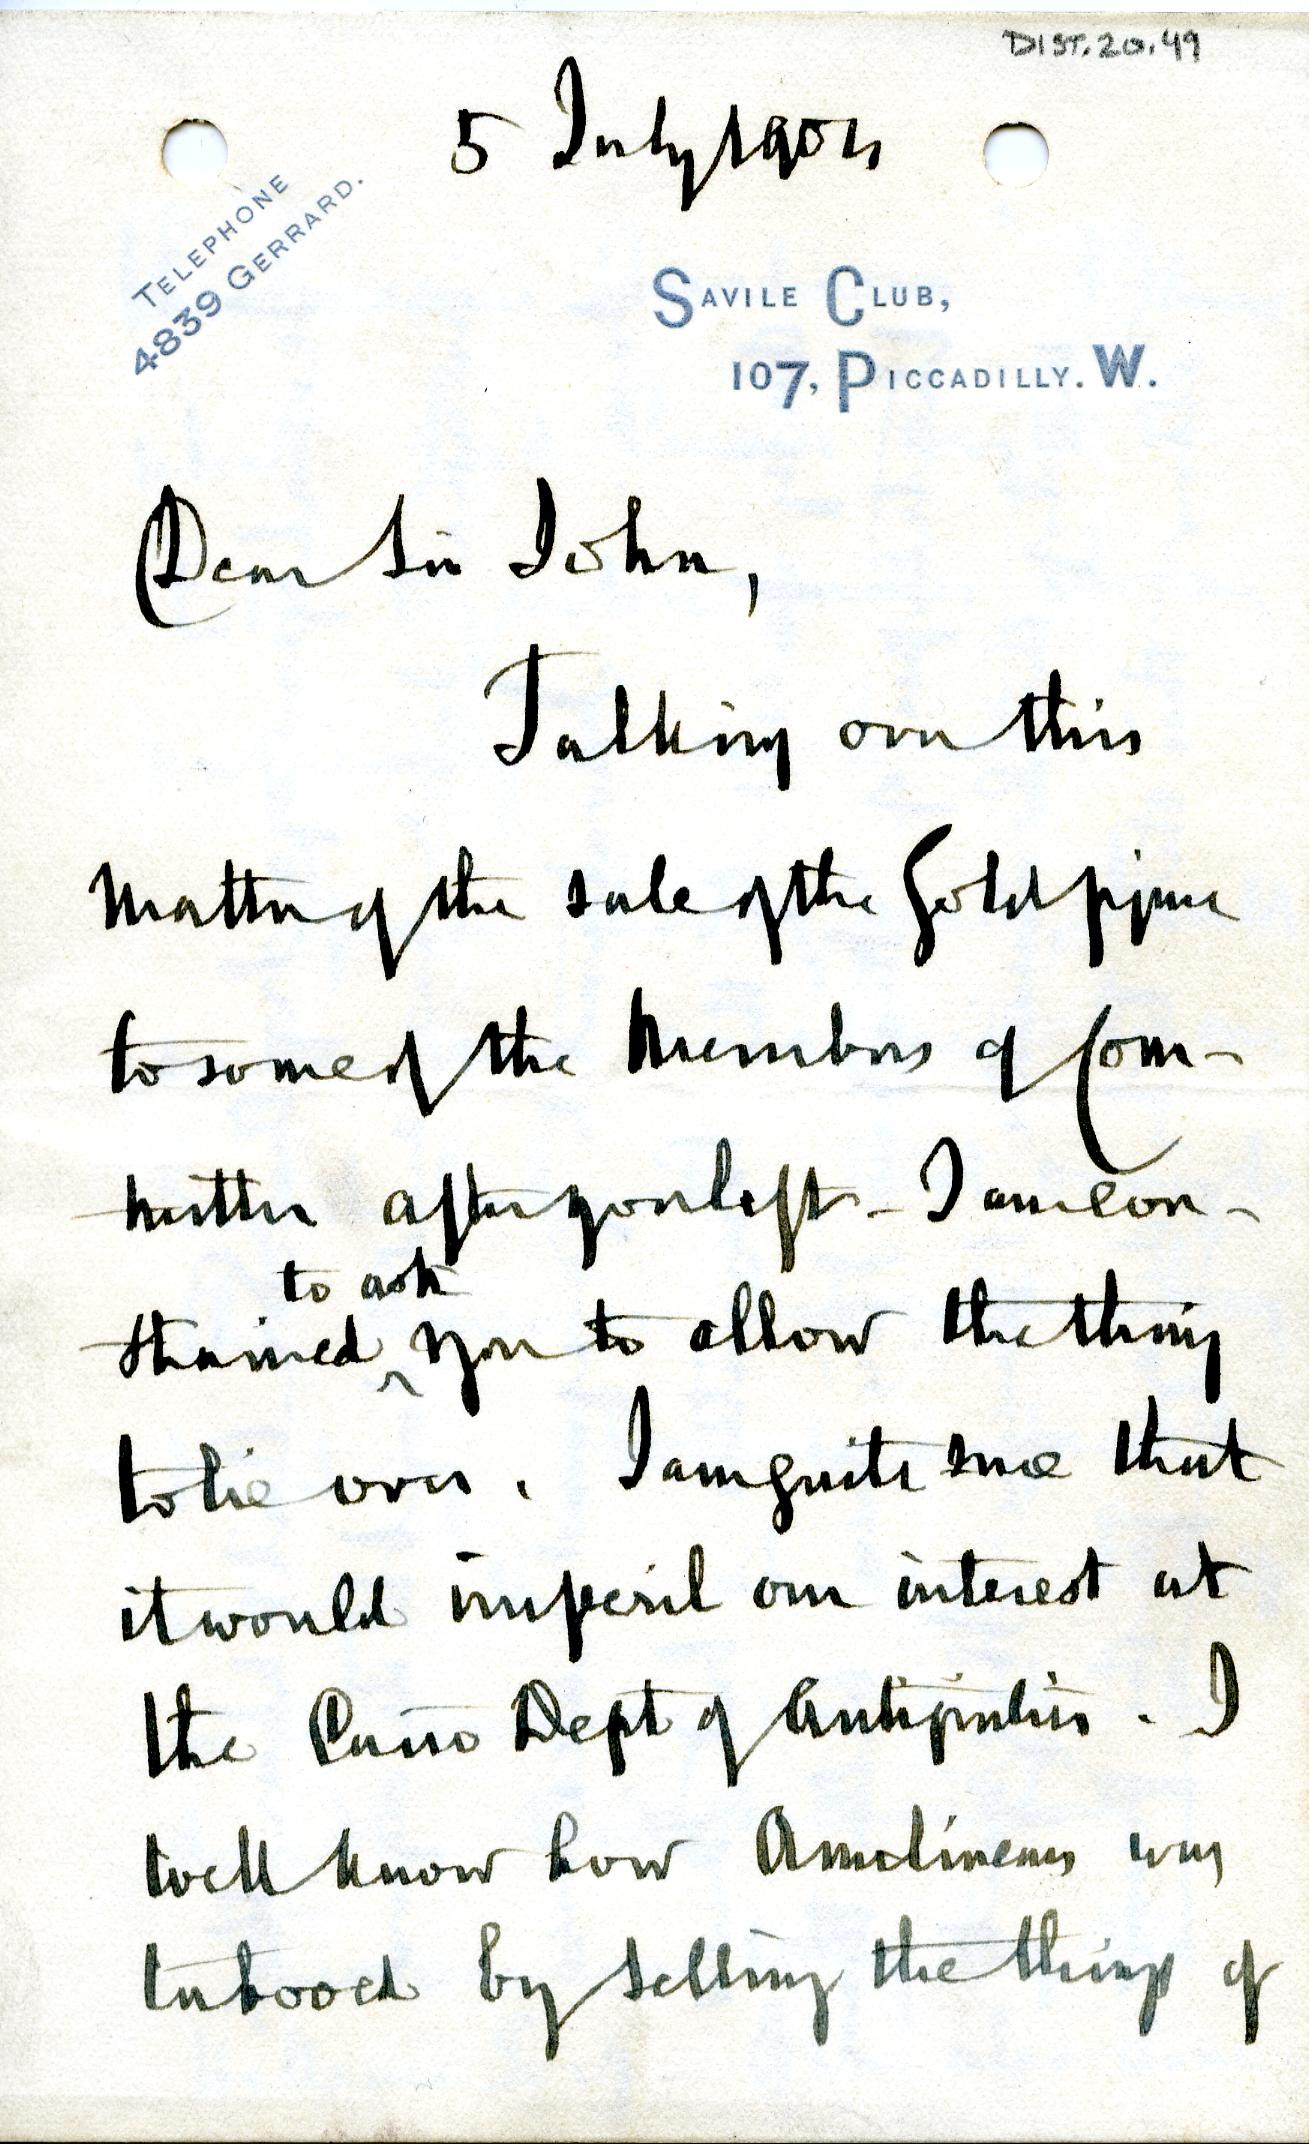 DIST.20.49
5 July 1904
TELEPHONE
4839 GERRARD.
SAVILE CLUB,
107, PICCADILLY. W.
Dear Sir John,
Talking over this
matter of the sale of the Gold figure
to some of the members of Com-
mittee after you left - I am con-
to ask
strained ^ you to allow the thing
to lie over. I am quite sure that
it would imperil our interest at
the Cairo Dept of Antiquities. I
well know how Amelineau was
tabooed by selling the things of